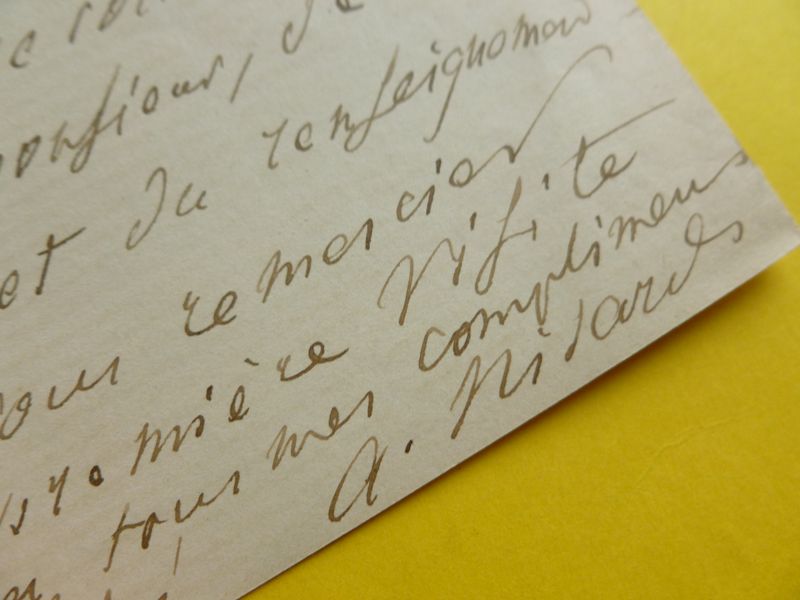 monsieur, de
et du renseignemen
vous remercier
mière visite
tous mes complimens
A. Nisard